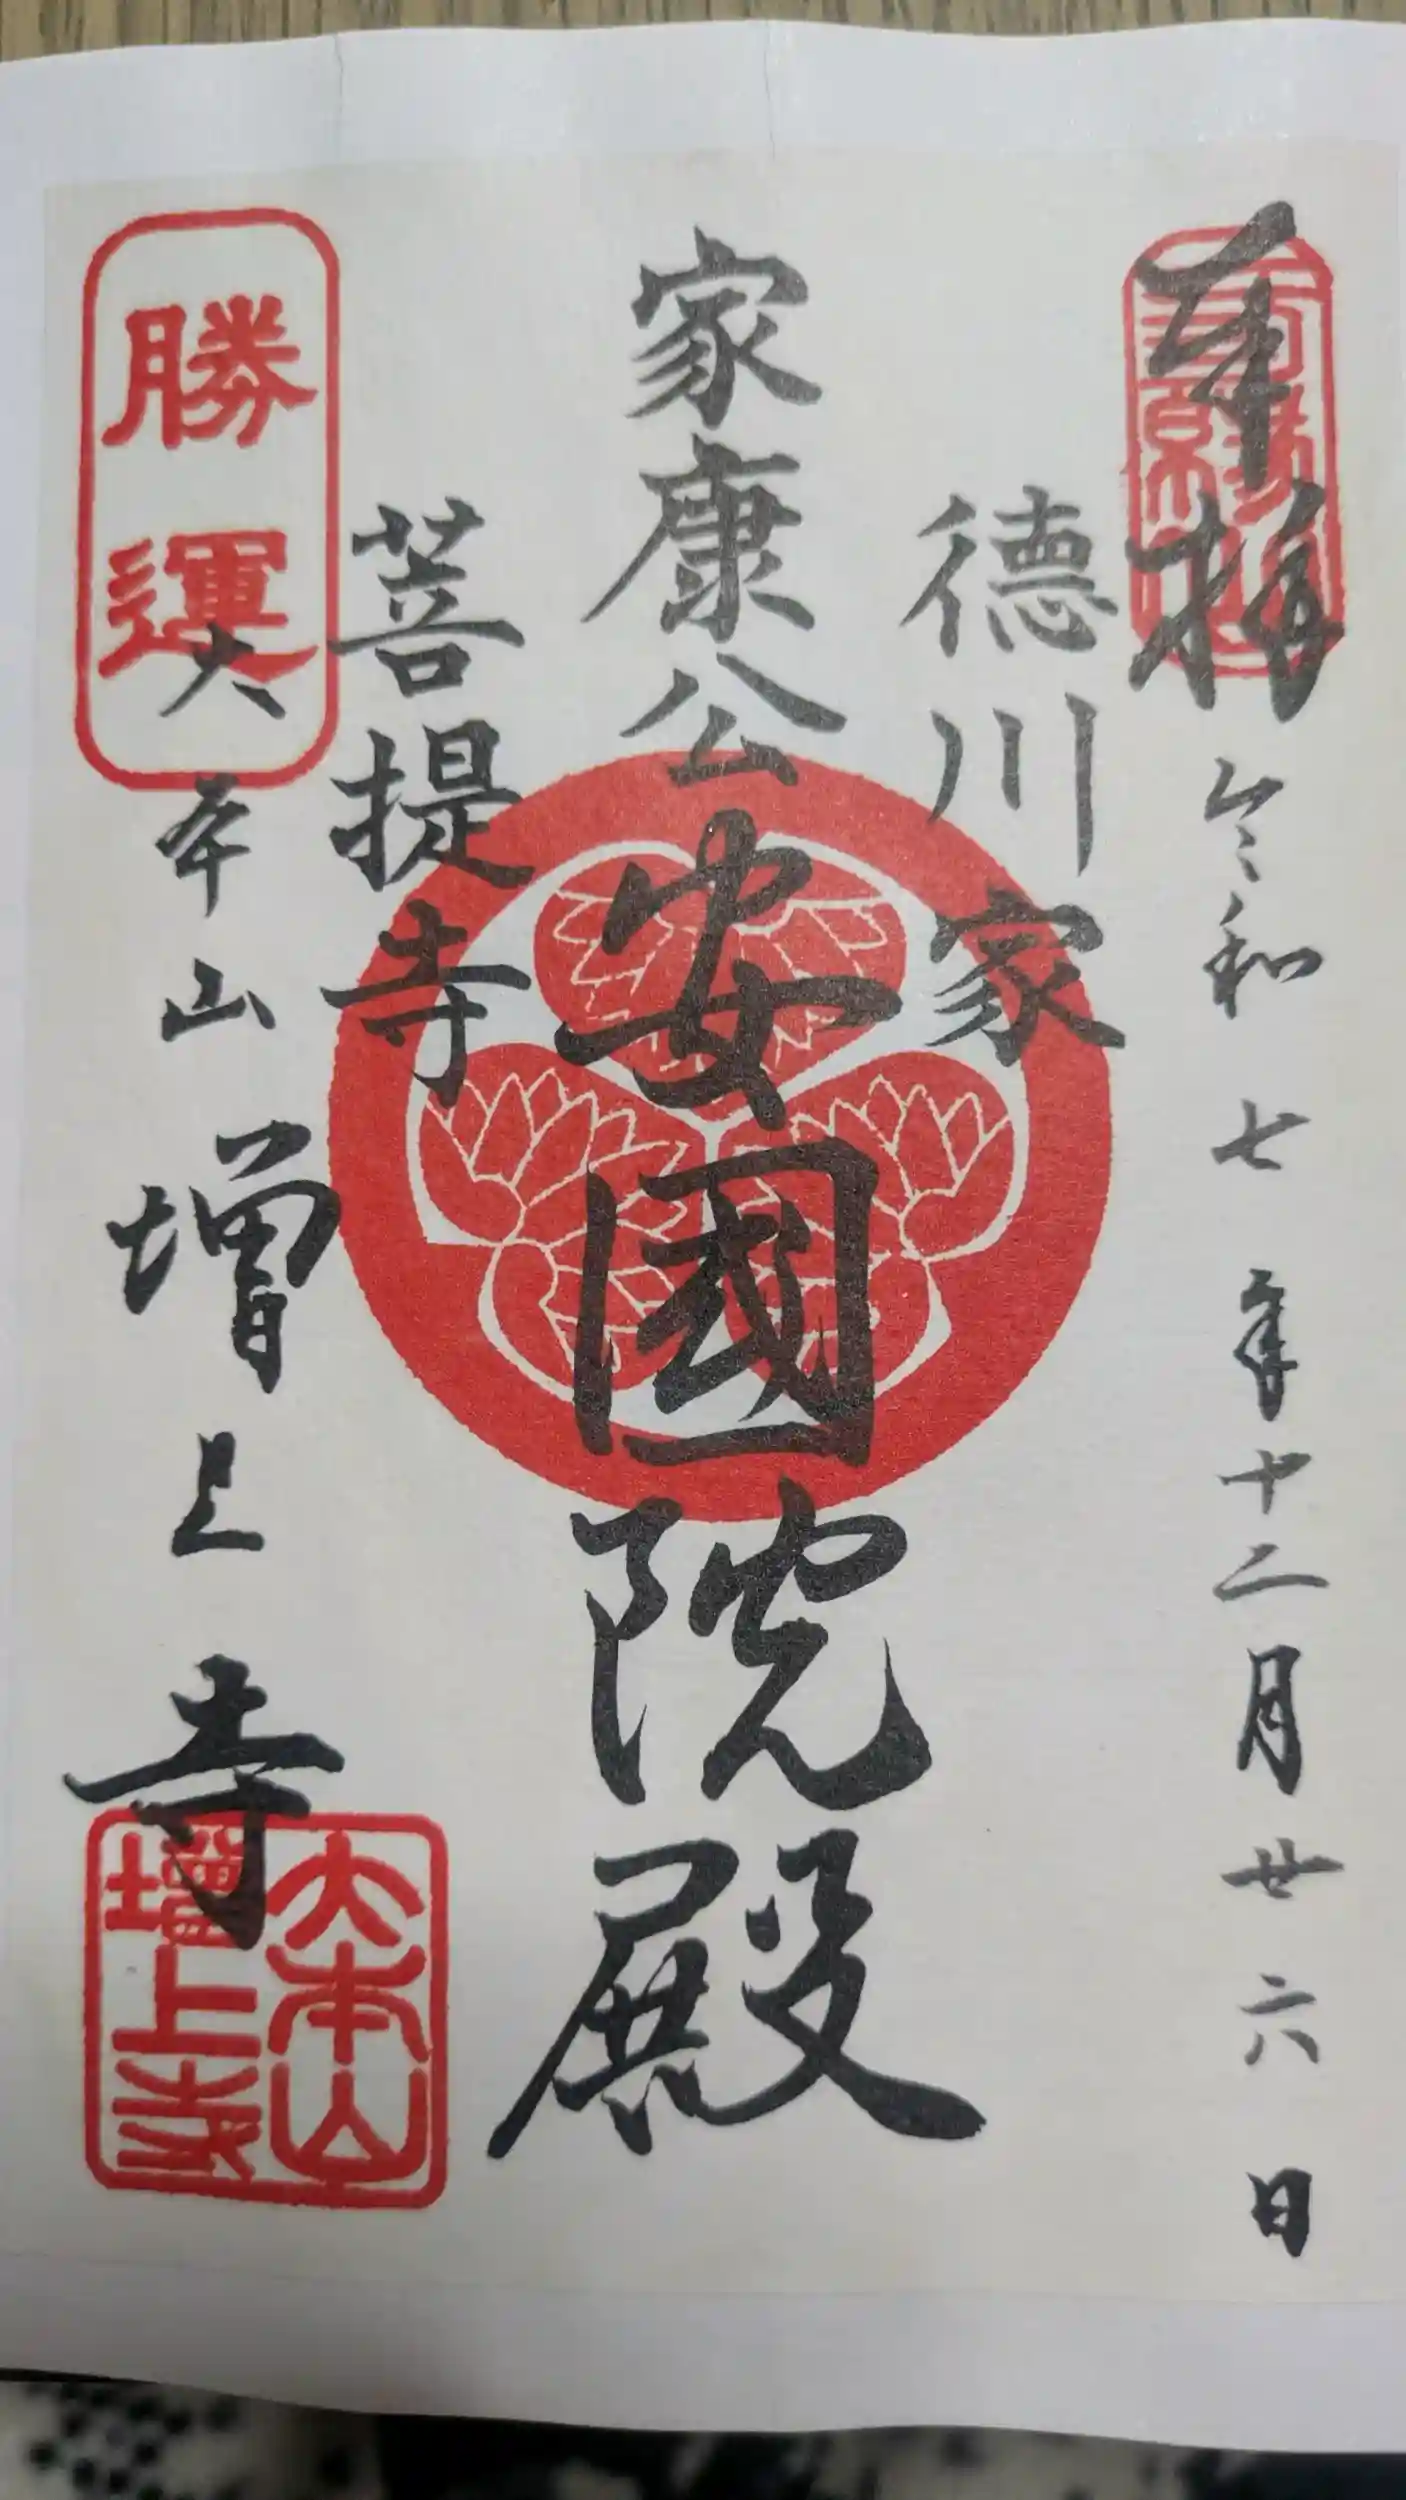 奉拝
令和七年十二月廿六日
德川家
家康公
安國院殿
菩提寺
勝運
大本山
增上寺
大本山
增上寺